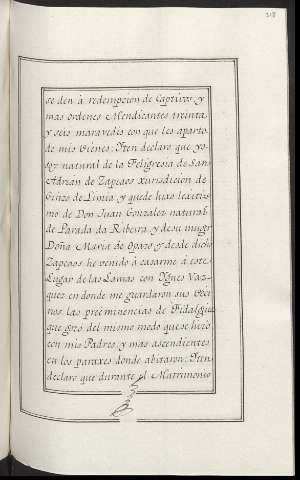 318
se den à redempcion de Captivos, y
mas ordenes Mendicantes treinta,
y seis maravedis con que les aparto,
de mis Bienes: Yten declaro que yo
soy natural de la Feligresia de San
Adrian de Zapeaos xurisdicion de
Ginzo de Limia, y quede hixo lexiti
mo de Don Juan Gonzalez natural
de Parada da Ribera y de su muger
Doña Maria de Opazo y desde dicho
Zapeaos he venido à casarme à este
Lugar de las Lamas con Ygnes Vaz
quez en donde me guardaron sus Veci
nos las preeminencias de Fidalguia
que gozó del mismo modo que se hizo
con mis Padres, y mas ascendientes
en los paraxes donde abitaron: Yten
declaro que durante el Matrimonio